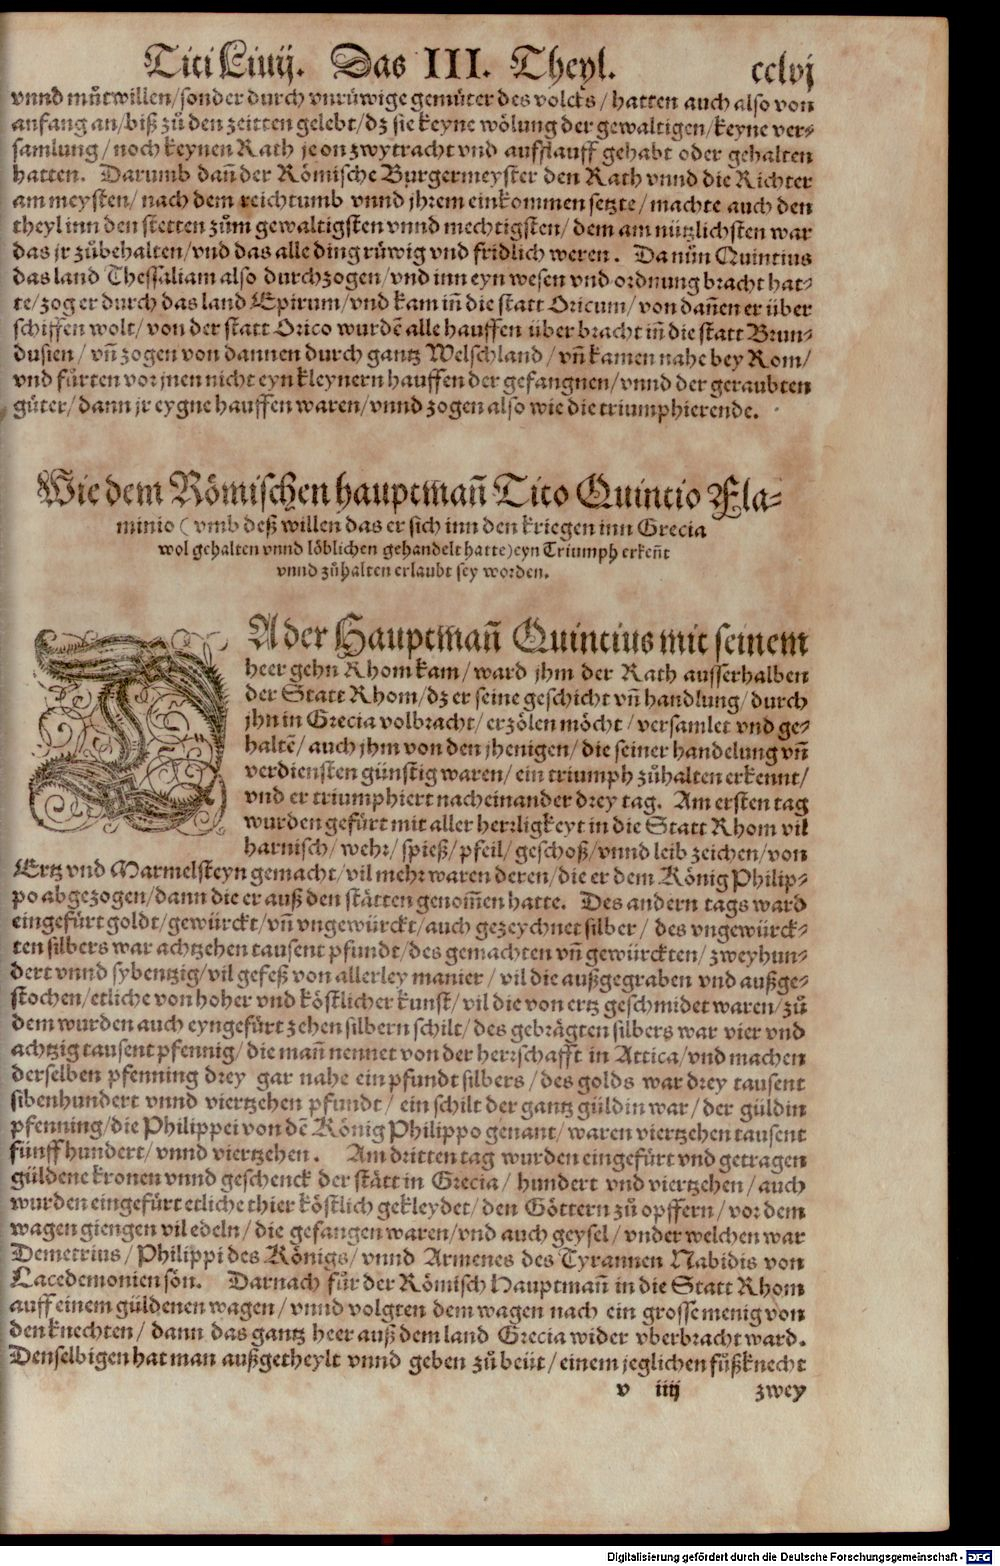 Titi Liuij. Das III. Theyl. cclvj
vnnd můtwillen/sonder durch vnrüwige gemüter des volcks/hatten auch also von
anfang an/biß zů den zeitten gelebt/dz sie keyne wölung der gewaltigen/keyne ver-
samlung/noch keynen Rath je on zwytracht vnd aufflauff gehabt oder gehalten
hatten. Darumb dañ der Römische Burgermeyster den Rath vnnd die Richter
am meysten/nach dem reichtumb vnnd jhrem einkommen setzte/machte auch den
theyl inn den stetten zům gewaltigsten vnnd mechtigsten/dem am nützlichsten war
das jr zůbehalten/vnd das alle ding rüwig vnd fridlich weren. Da nůn Quintius
das land Thessaliam also durchzogen/vnd inn eyn wesen vnd ordnung bracht hat-
te/zog er durch das land Epirum/vnd kam iñ die statt Oricum/von dañen er über
schiffen wolt/von der statt Orico wurdē alle hauffen über bracht iñ die statt Brun-
dusien/vñ zogen von dannen durch gantz Welschland/vñ kamen nahe bey Rom/
vnd fürten vor jnen nicht eyn kleynern hauffen der gefangnen/vnnd der geraubten
güter/dann jr eygne hauffen waren/vnnd zogen also wie die triumphierende.
Wie dem Römischen hauptmañ Tito Quintio Fla-
minio (vmb deß willen das er sich inn den kriegen inn Grecia
wol gehalten vnnd löblichen gehandelt hatte) eyn Triumph erkeñt
vnnd zůhalten erlaubt sey worden.
DA der Hauptmañ Quintius mit seinem
heer gehn Rhom kam/ward jhm der Rath ausserhalben
der Statt Rhom/dz er seine geschicht vñ handlung/durch
jhn in Grecia volbracht/erzölen möcht/versamlet vnd ge-
haltē/auch jhm von den jhenigen/die seiner handelung vñ
verdiensten günstig waren/ein triumph zůhalten erkennt/
vnd er triumphiert nacheinander drey tag. Am ersten tag
wurden gefürt mit aller herrligkeyt in die Statt Rhom vil
harnisch/wehr/spieß/pfeil/geschoß/vnnd leib zeichen/von
Ertz vnd Marmelsteyn gemacht/vil mehr waren deren/die er dem König Philip-
po abgezogen/dann die er auß den stätten genom̄en hatte. Des andern tags ward
eingefürt goldt/gewürckt/vñ vngewürckt/auch gezeychnet silber/des vngewürck-
ten silbers war achtzehen tausent pfundt/des gemachten vñ gewürckten/zweyhun-
dert vnnd sybentzig/vil gefeß von allerley manier/vil die außgegraben vnd außge-
stochen/etliche von hoher vnd köstlicher kunst/vil die von ertz geschmidet waren/zů
dem wurden auch eyngefürt zehen silbern schilt/des gebrägten silbers war vier vnd
achtzig tausent pfennig/die mañ nennet von der herrschafft in Attica/vnd machen
derselben pfenning drey gar nahe ein pfundt silbers/des golds war drey tausent
sibenhundert vnnd viertzehen pfundt/ein schilt der gantz güldin war/der güldin
pfenning/die Philippei von dē König Philippo genant/waren viertzehen tausent
fünff hundert/vnnd viertzehen. Am dritten tag wurden eingefürt vnd getragen
güldene kronen vnnd geschenck der stätt in Grecia/hundert vnd viertzehen/auch
wurden eingefürt etliche thier köstlich gekleydet/den Göttern zů opffern/vor dem
wagen giengen vil edeln/die gefangen waren/vnd auch geysel/vnder welchen war
Demetrius/Philippi des Königs/vnnd Armenes des Tyrannen Nabidis von
Lacedemonien sön. Darnach für der Römisch Hauptmañ in die Statt Rhom
auff einem güldenen wagen/vnnd volgten dem wagen nach ein grosse menig von
den knechten/dann das gantz heer auß dem land Grecia wider vberbracht ward.
Denselbigen hat man außgetheylt vnnd geben zů beüt/einem jeglichen fůßknecht
v iiij zwey
Digitalisierung gefördert durch die Deutsche Forschungsgemeinschaft - DFG